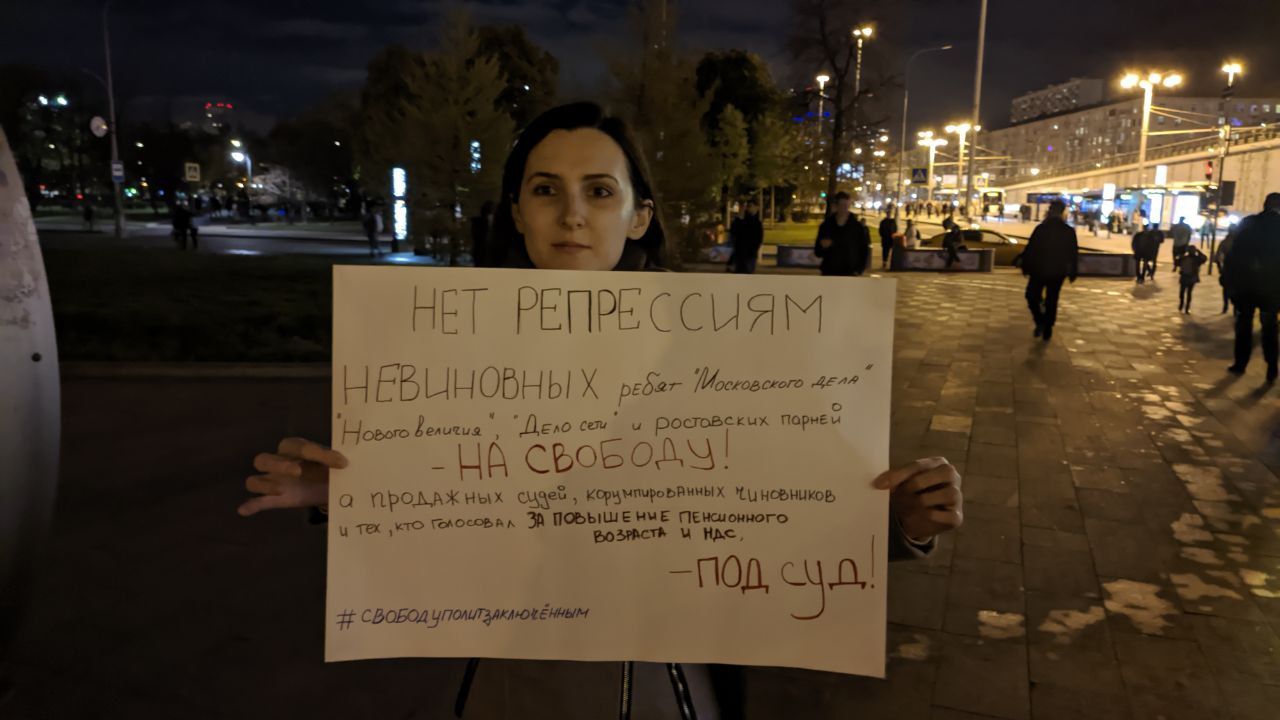 НЕТ РЕПРЕССИЯМ
НЕВИНОВНЫХ ребят "Московского дела"
"Нового величия", "Дело сети" и роставских парней
- НА СВОБОДУ!
а продажных судей, корумпированных чиновников
и тех, кто голосовал ЗА ПОВЫШЕНИЕ ПЕНСИОННОГО
ВОЗРАСТА И НДС,
- ПОД СУД!
#СВОБОДУПОЛИТЗАКЛЮЧЁННЫМ